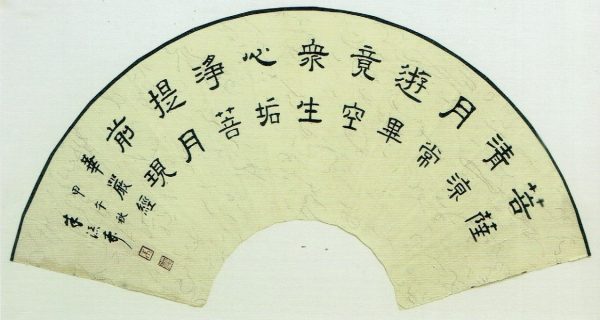 菩薩
清涼
月常
遊畢
竟空
衆生
心垢
淨菩
提月
前現
華嚴經
甲午秋